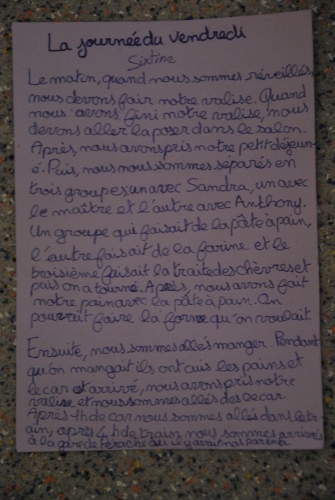 La journée du vendredi
Sixtine
Le matin, quand nous sommes réveillés,
nous devons fair notre valise. Quand
nous avons fini notre valise, nous
devons aller la poser dans le salon.
Après, nous avons pris notre petit déjeun-
é. Puis, nous nous sommes séparés en
trois groupes un avec Sandra, un avec
le maître et l'autre avec Anthony.
Un groupe qui faisait de la pâte à pain,
l'autre faisait de la farine et le
troisième faisait la traite des chèvres et
puis on a tourné. Après, nous avons fait
notre pain avec la pâte à pain. On
pouvait faire la forme qu'on voulait
Ensuite, nous sommes allés manger. Pendant
qu'on mangait ils ont cuis les pains et
le car et arrivé, nous avons pris notre
valise et nous sommes allés des le car
Après 1h de car nous sommes allés dans le tr-
ain, après 4h de train nous sommes arrivés
à la gare de Perrache ou il y avait nos parents.